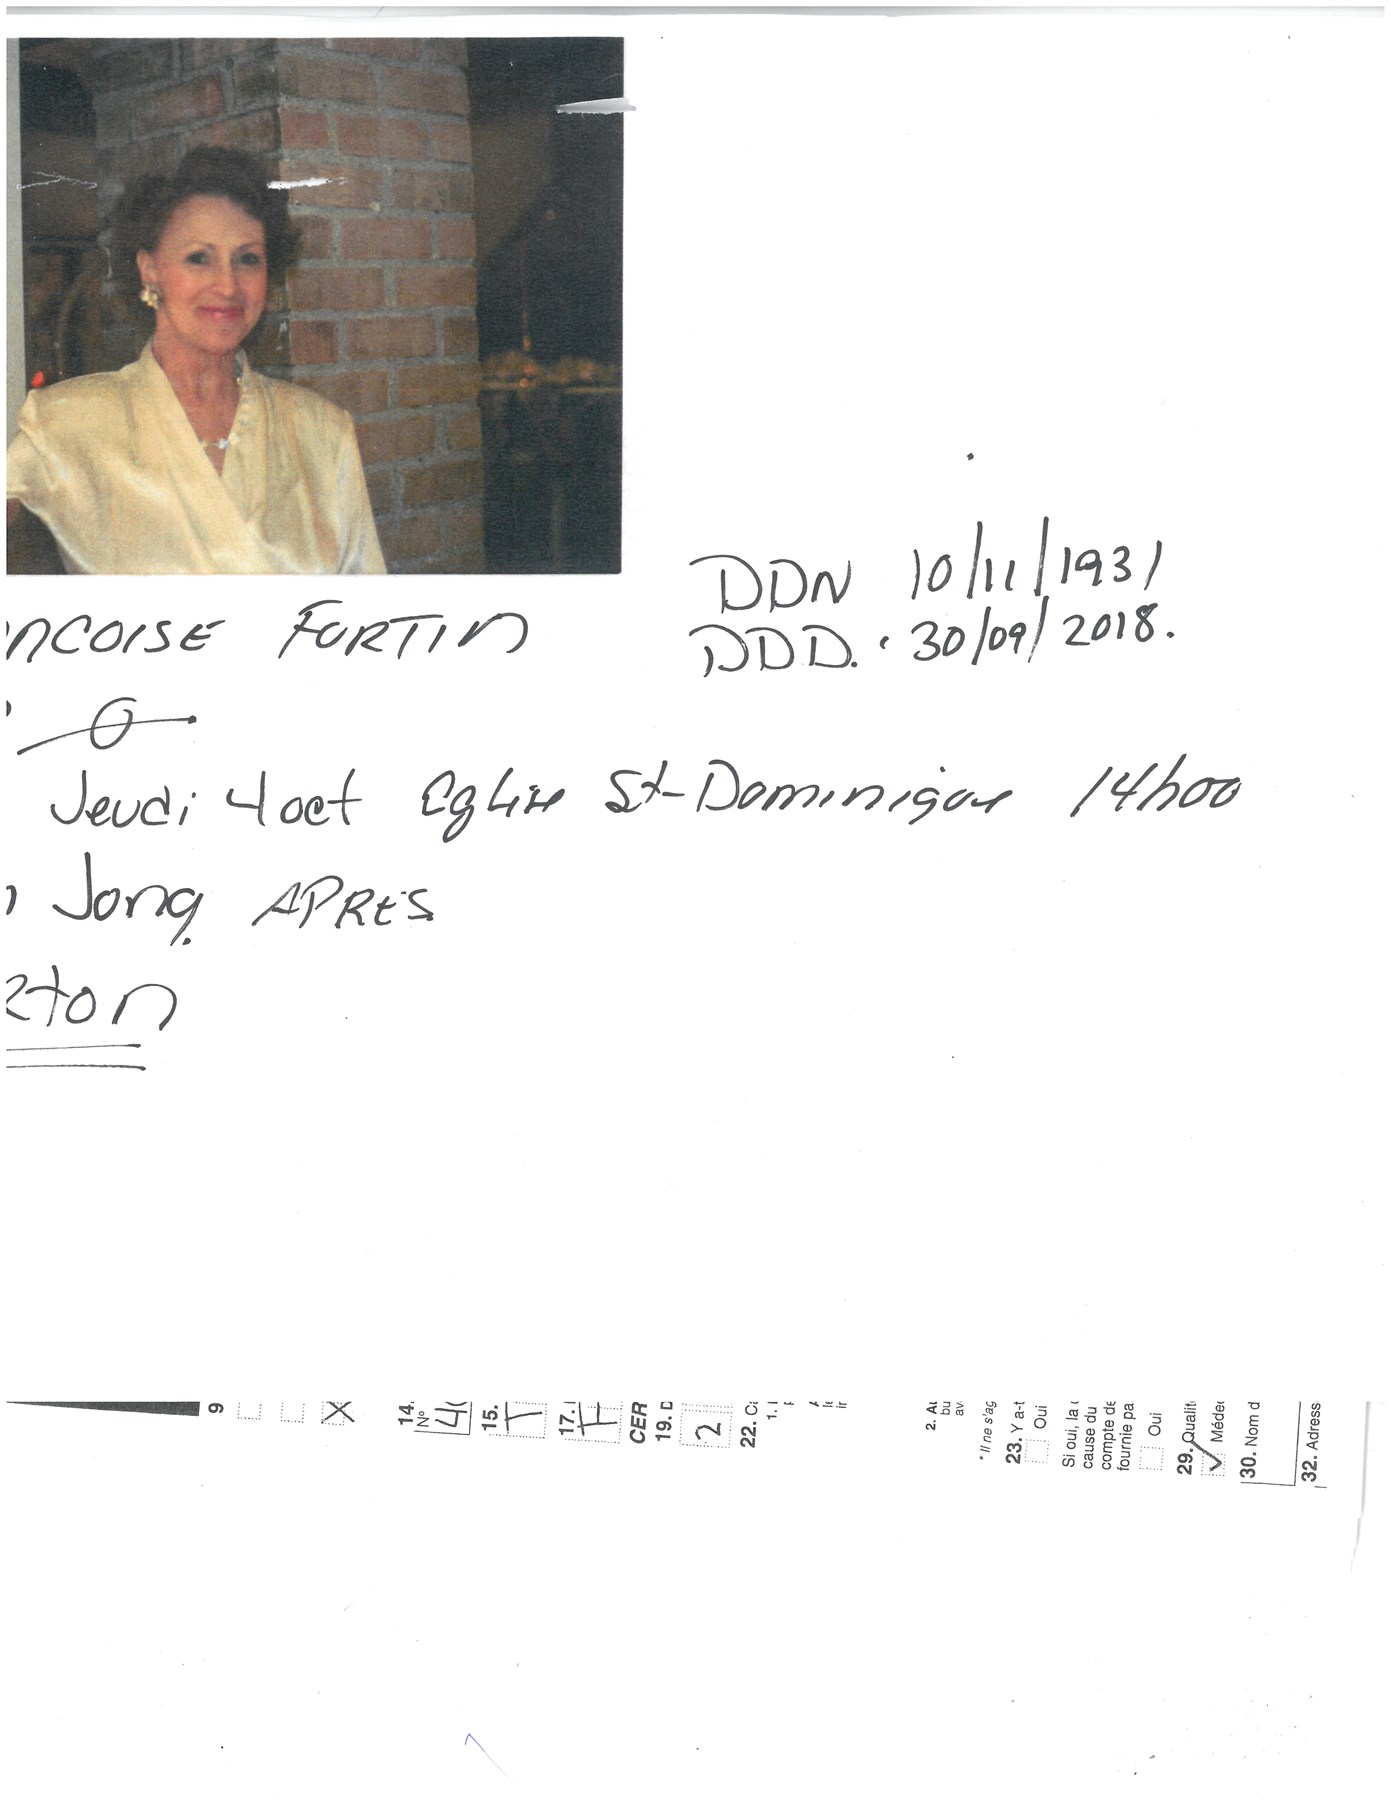 NCOISE FORTIN
DDN 10/11/1931
DDD. 30/09/2018.
Jeudi 4 oct Eglise St-Dominique 14h00
Jonq. APRÈS
ton
9
X
14.
N°
4
15.
17.
CER
19. D
2
22. C
1.
2. Au
bu
av
* Il ne s'ag
23. Y a-t
Oui
Si oui, la
cause du
compte de
fournie pa
Oui
29. Qualit
Méde
30. Nom d
32. Adress